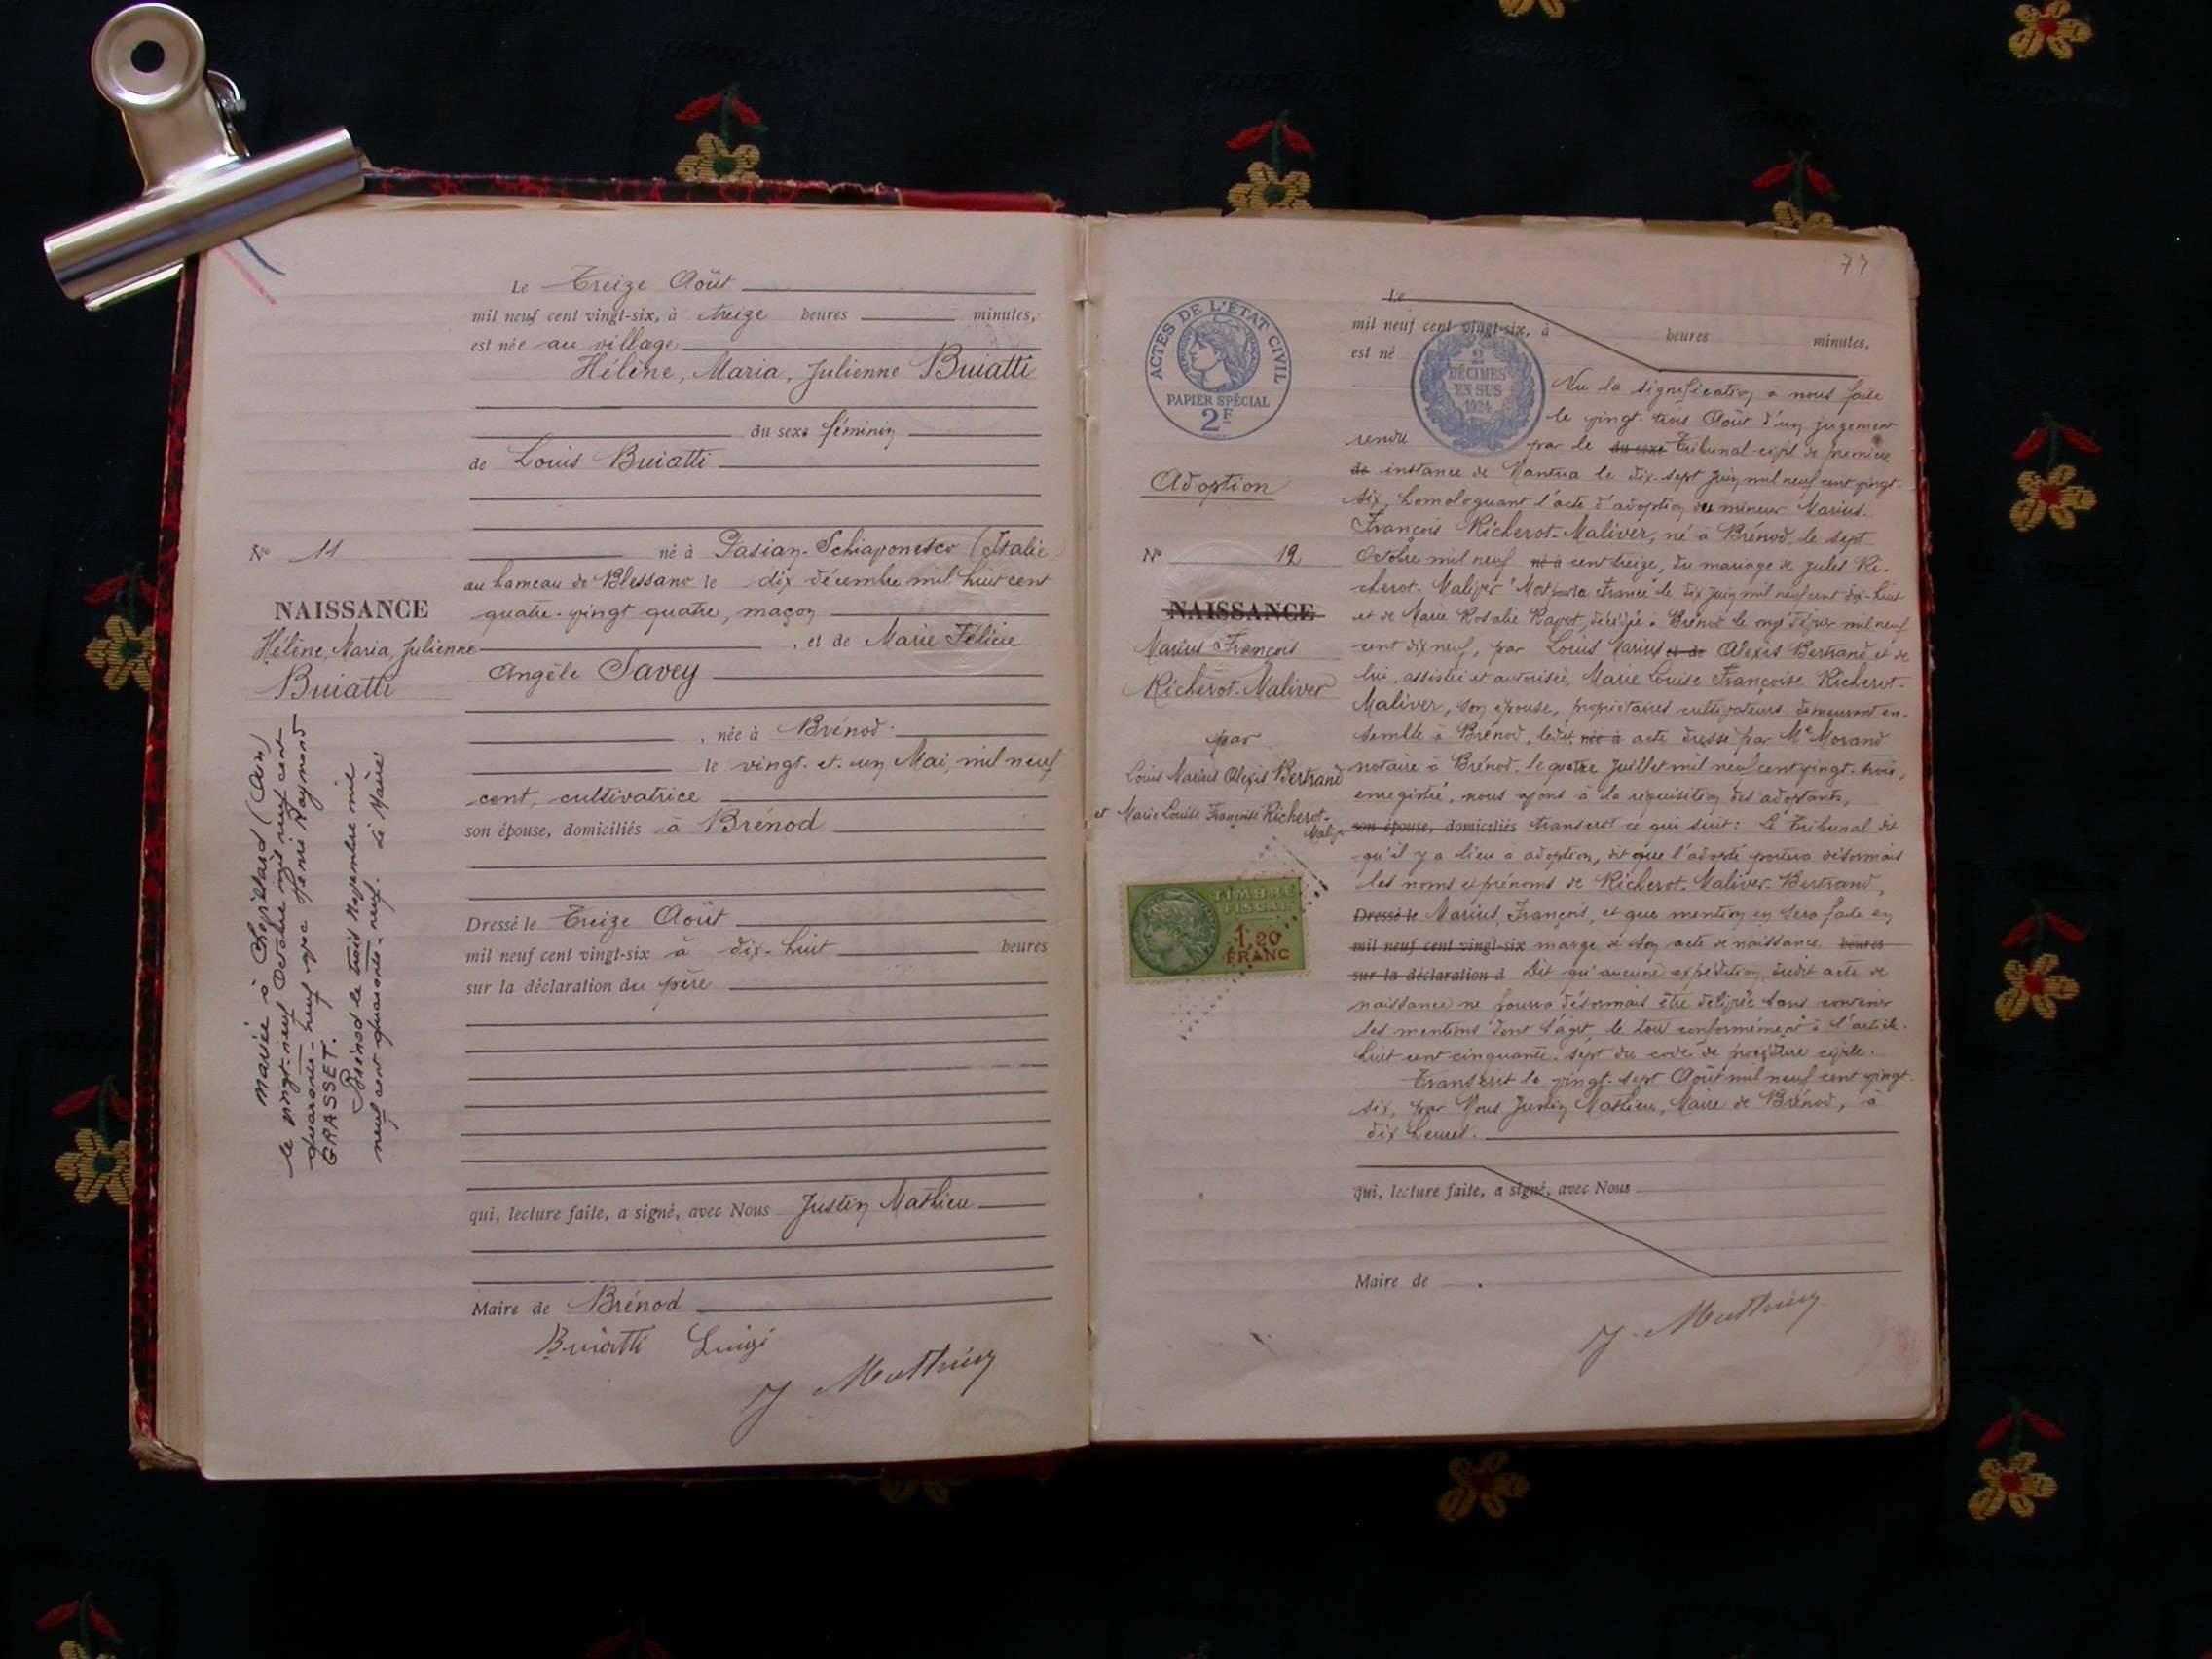 Le Treize Août
mil neuf cent vingt-six, à treize heures minutes,
est née au village
Hélène, Maria, Julienne Buiatti
du sexe féminin
de Louis Buiatti
né à Pasian-Schiavonesco (Italie
au hameau de Blessano le dix décembre mil huit cent
quatre-vingt quatre, maçon
, et de Marie Félicie
Angèle Savey
, née à Brénod
le vingt-et-un Mai, mil neuf
cent, cultivatrice
son épouse, domiciliés à Brénod
Dressé le Treize Août
mil neuf cent vingt-six à dix-huit heures
sur la déclaration du père
qui, lecture faite, a signé, avec Nous Justin Mathieu
Maire de Brénod
Buiatti Luigi
J Mathieu
N° 11
NAISSANCE
Hélène, Maria, Julienne
Buiatti
Mariée à (Ain)
le vingt-neuf Octobre mil neuf cent
quarante-neuf avec Henri Raymond
GRASSET.
Brénod le trois Novembre mil
neuf cent quarante-neuf. Le Maire
77
ACTES DE L'ÉTAT CIVIL
PAPIER SPÉCIAL
2F
2
DÉCIMES
EN SUS
1924
Adoption
N° 12
NAISSANCE
Marius François
Richerot-Maliver
par
Louis Marius Alexis Bertrand
et Marie Louise Françoise Richerot-
TIMBRE
FISCAL
1,20
FRANC
Le
mil neuf cent vingt-six, à heures minutes,
est né
Vu la signification à nous faite
le vingt-trois Août d'un jugement
rendu par le du sexe Tribunal civil de première
de instance de Nantua le dix-sept Juin mil neuf cent vingt-
six, homologuant l'acte d'adoption du mineur Marius
François Richerot-Maliver, né à Brénod, le sept
Octobre mil neuf né à cent treize, du mariage de Jules Ri-
cherot-Maliver "Mort pour la France" le dix Juin mil neuf cent dix-huit
et de Marie Rosalie décédée à Brénod le onze mil neuf
cent dix neuf, par Louis Marius et de Alexis Bertrand et de
lui, assistée et autorisée, Marie Louise Françoise Richerot-
Maliver, son épouse, propriétaires cultivateurs demeurant en-
semble à Brénod, ledit née à acte dressé par Me Morand
notaire à Brénod, le quatre Juillet mil neuf cent vingt-trois,
enregistré, nous avons à la réquisition des adoptants,
son épouse, domiciliés transcrit ce qui suit: Le Tribunal dit
qu'il y a lieu à adoption, dit que l'adopté portera désormais
les noms et prénoms de Richerot-Maliver-Bertrand,
Dressé le Marius, François, et que mention en sera faite en
mil neuf cent vingt-six marge de son acte de naissance heures
sur la déclaration d Dit qu'aucune expédition dudit acte de
naissance ne pourra désormais être délivrée sans contenir
les mentions dont s'agit, le tout conformément à l'article
huit cent cinquante-sept du code de procédure civile.
Transcrit le vingt-sept Août mil neuf cent vingt-
six, par Nous Justin Mathieu, Maire de Brénod, à
dix heures.
qui, lecture faite, a signé, avec Nous
Maire de
J. Mathieu